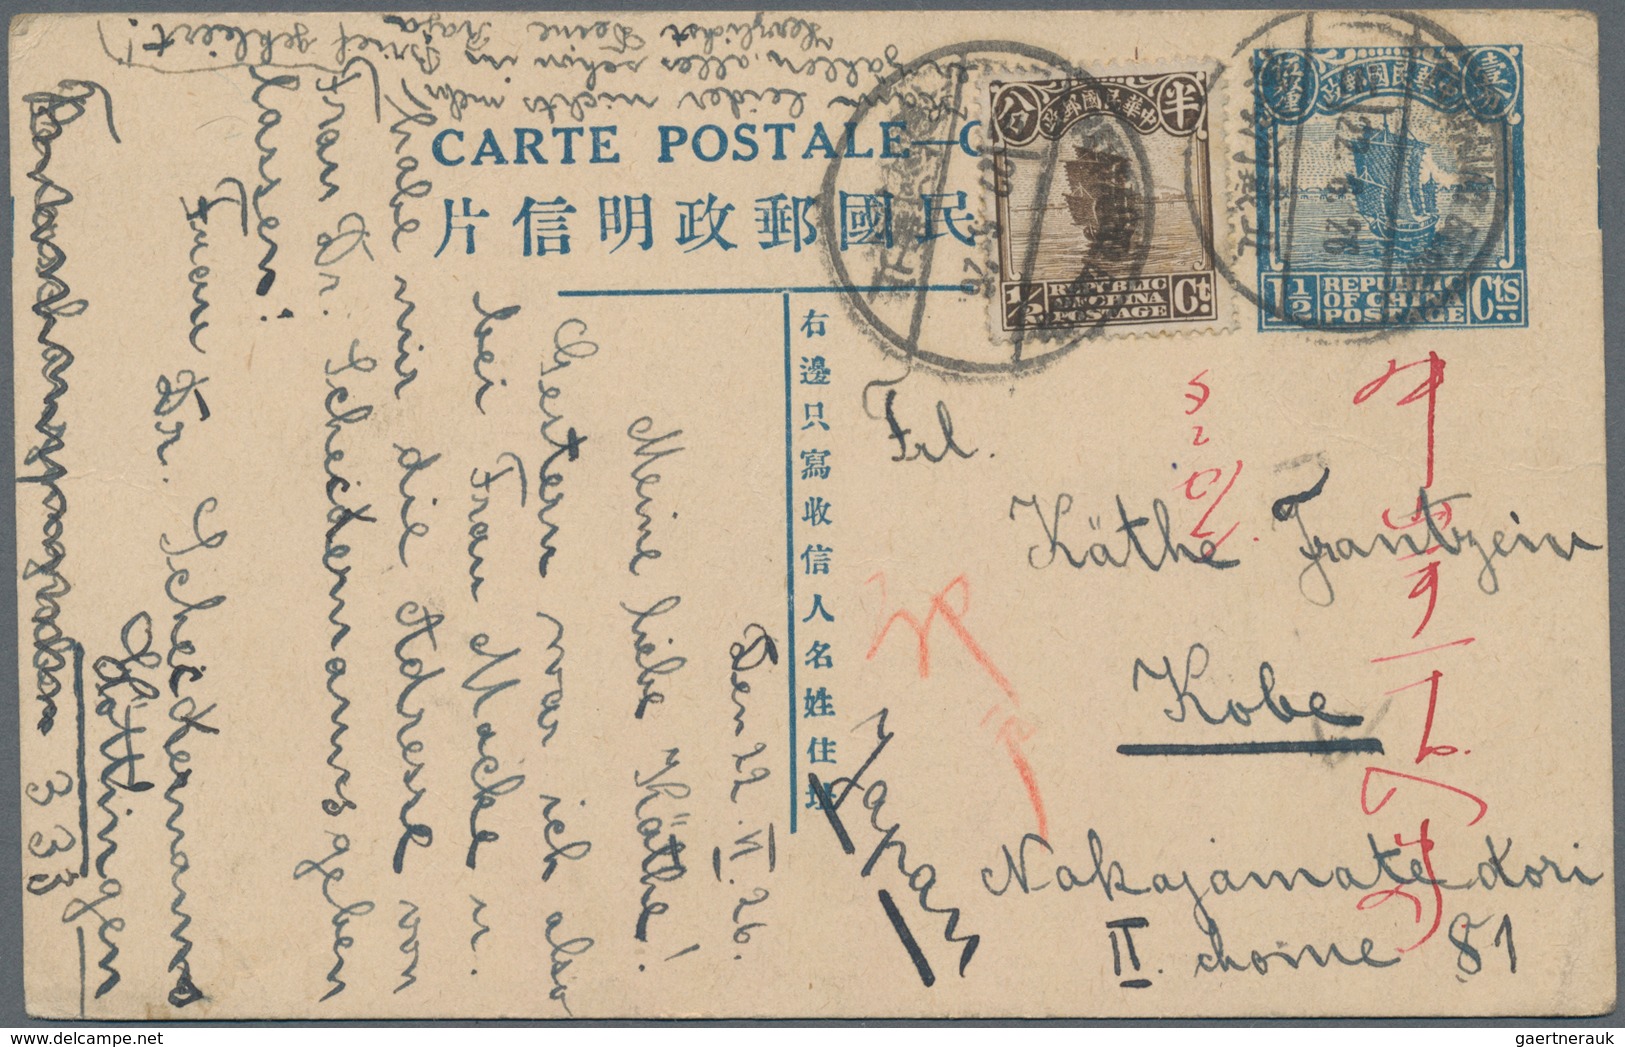 CARTE POSTALE—C
片信明政郵國民
右邊只寫收信人名姓住址
半 分
中華民國郵政
1/2 Ct.
REPUBLIC
OF CHINA
POSTAGE
壹分
中華民國郵政
1 1/2 Cts.
REPUBLIC
OF CHINA
POSTAGE
22.6.26
Frl.
Käthe Frantzein
Kobe
Japan
Nakajamate dori
II. chome 81
Den 22.VI.26.
Meine liebe Käthe!
Gestern war ich also
bei Frau Macke u.
habe mir die Adresse von
Frau Dr. Scheidemanns geben
lassen:
Frau Dr. Scheidemann
Göttingen
333
Kann leider nichts mehr
erzählen, alles schon im Brief gekleert!)
Herzlichst Deine Kaja
gaertnerauk @ www.delcampe.net